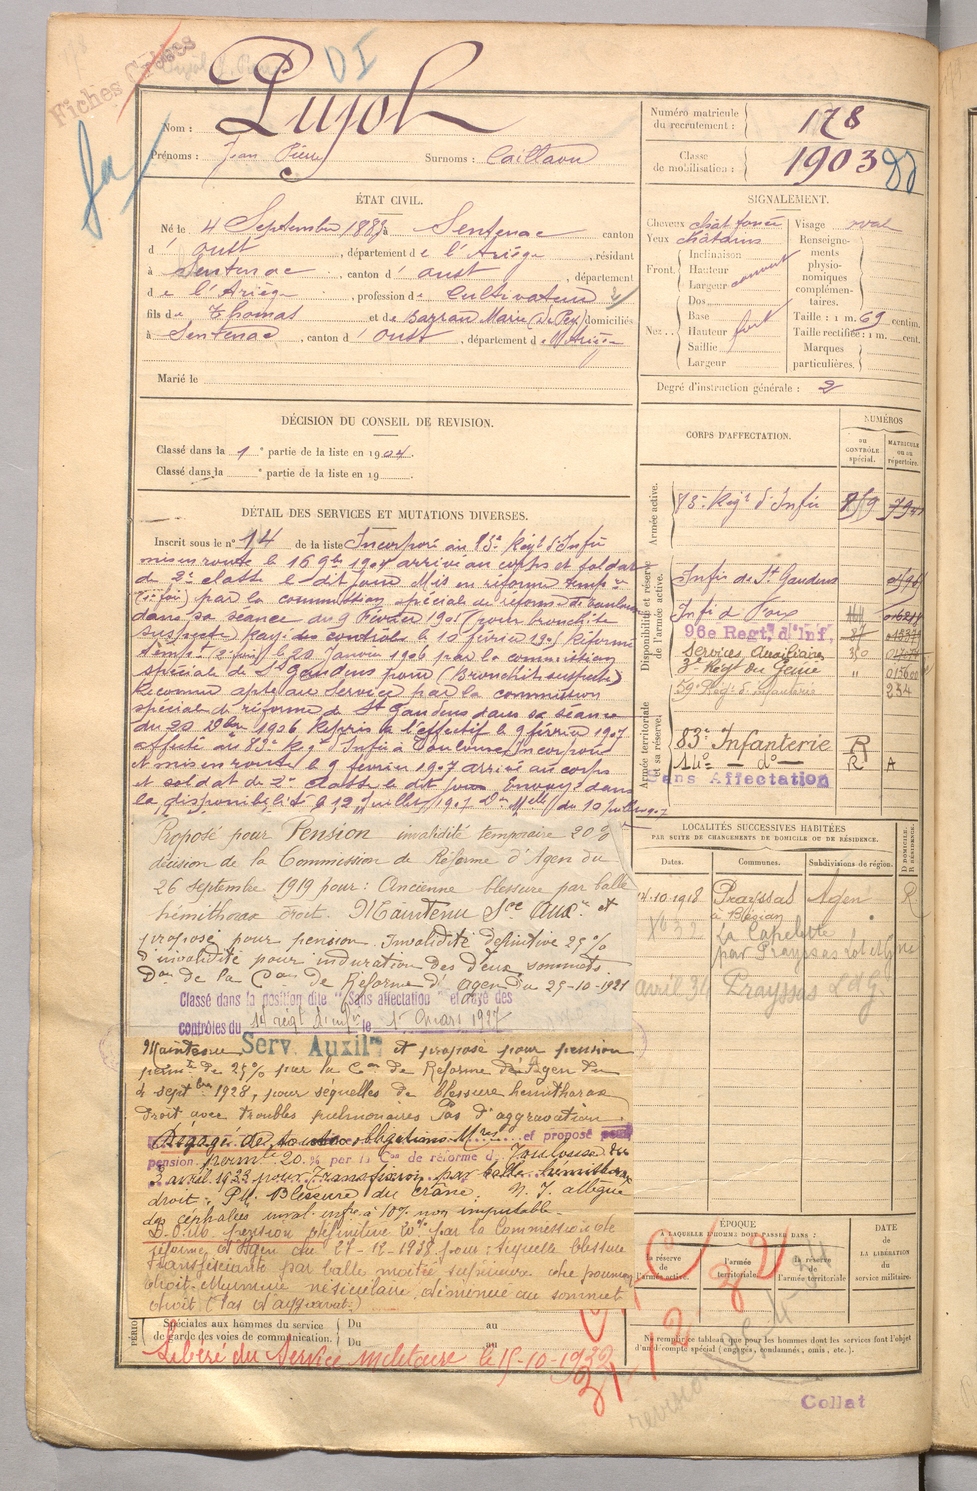 Fiches Créées
DI
Nom : Pujol
Prénoms : Jean Pierre Surnoms : Caillaou
Numéro matricule du recrutement : 178
Classe de mobilisation : 1903
ÉTAT CIVIL.
Né le 4 Septembre 1883 à Sentenac canton
d' Oust, département de l'Ariège, résidant
à Sentenac, canton d' Oust, département
de l'Ariège, profession de Cultivateur
fils de Thomas et de Barrau Marie domiciliés
à Sentenac, canton d' Oust, département de l'Ariège
Marié le
SIGNALEMENT.
Cheveux chât foncé
Yeux châtains
Front. Inclinaison
Hauteur
Largeur
Nez. Dos
Base
Hauteur fort
Saillie
Largeur
Visage oval
Renseignements physionomiques complémentaires.
Taille : 1 m. 69 centim.
Taille rectifiée : 1 m. cent.
Marques particulières.
Degré d'instruction générale : 2
DÉCISION DU CONSEIL DE REVISION.
Classé dans la 1e partie de la liste en 1904.
Classé dans la e partie de la liste en 19
DÉTAIL DES SERVICES ET MUTATIONS DIVERSES.
Inscrit sous le n° 14 de la liste Incorporé au 83e Régt d'Infie
mis en route le 16 9bre 1904 arrivé au corps et soldat
de 2e classe le dit jour Mis en réforme tempre
(1re fois) par la commission spéciale de réforme de Toulouse
dans sa séance du 9 Février 1905 pour bronchite
suspecte Rayé des contrôles le 10 février 1905 Réformé
tempt (2e fois) le 20 Janvier 1906 par la commission
spéciale de St Gaudens pour (Bronchite suspecte)
Reconnu apte au Service par la commission
spéciale de réforme de St Gaudens dans sa séance
du 20 Xbre 1906 Repris à l'effectif le 9 février 1907
affecté au 83e Régt d'Infie à Toulouse Incorporé
et mis en route le 9 février 1907 arrivé au corps
et soldat de 2e classe le dit jour Envoyé dans
la disponibilité le 12 Juillet 1907 Don Mlle du 10 juillet 1907
Proposé pour Pension invalidité temporaire 20 %
décision de la Commission de Réforme d'Agen du
26 septembre 1919 pour : Ancienne blessure par balle
hémithorax droit. Maintenu Sce Auxre et
proposé pour pension Invalidité définitive 25 %
d'invalidité pour induration des deux sommets.
Don de la Con de Réforme d'Agen du 25-10-1921
Classé dans la position dite "Sans affectation" et rayé des
contrôles du 14e régt d'infie le 1er Mars 1927
Maintenu Serv. Auxilre et proposé pour pension
permte de 25 % par la Con de Réforme d'Agen du
4 septbre 1928, pour séquelles de blessure hémithorax
droit avec troubles pulmonaires Pas d'aggravation.
Dégagé de toutes obligations Mres et proposé pour
pension permte 20 % par la Con de réforme de Toulouse du
3 avril 1933 pour Transfixion par balle hémithorax
droit : P.M. Blessure du crâne. N. I. allègue
des céphalées inval. infre à 10 % non imputable.
pension définitive 20 % par la Commission de
réforme d'Agen du 27-12-1938 pour : séquelle blessure
transfixiante par balle moitié supérieure du poumon
droit. Murmure vésiculaire diminué au sommet
droit (Pas d'aggravat.)
CORPS D'AFFECTATION.
NUMÉROS
au CONTRÔLE spécial.
MATRICULE ou au répertoire.
Armée active.
83e Régt d'Infie
Disponibilité et réserve de l'armée active.
Infie de St Gaudens
Infie de Foix
96e Regt, d'Inf.
Services Auxiliaires 350
3e Régt du Génie " 015600
59e Régt d'Infanterie 254
Armée territoriale et sa réserve.
83e Infanterie R
14e — do — R A
Sans Affectation
LOCALITÉS SUCCESSIVES HABITÉES
PAR SUITE DE CHANGEMENTS DE DOMICILE OU DE RÉSIDENCE.
Dates. Communes. Subdivisions de région. D DOMICILE. R RÉSIDENCE.
4-10-1918 Prayssas Agen R
La Capelette
par Prayssas Lot et Gne
avril 34 Prayssas L et G
ÉPOQUE
À LAQUELLE L'HOMME DOIT PASSER DANS :
la réserve de l'armée active.
l'armée territoriale.
la réserve de l'armée territoriale
DATE de LA LIBÉRATION du service militaire.
Ne remplir ce tableau que pour les hommes dont les services font l'objet
d'un décompte spécial (engagés, condamnés, omis, etc.).
PÉRIO
Spéciales aux hommes du service Du au
de garde des voies de communication. Du au
Libéré du Service militaire le 15-10-1932
revision
Collat